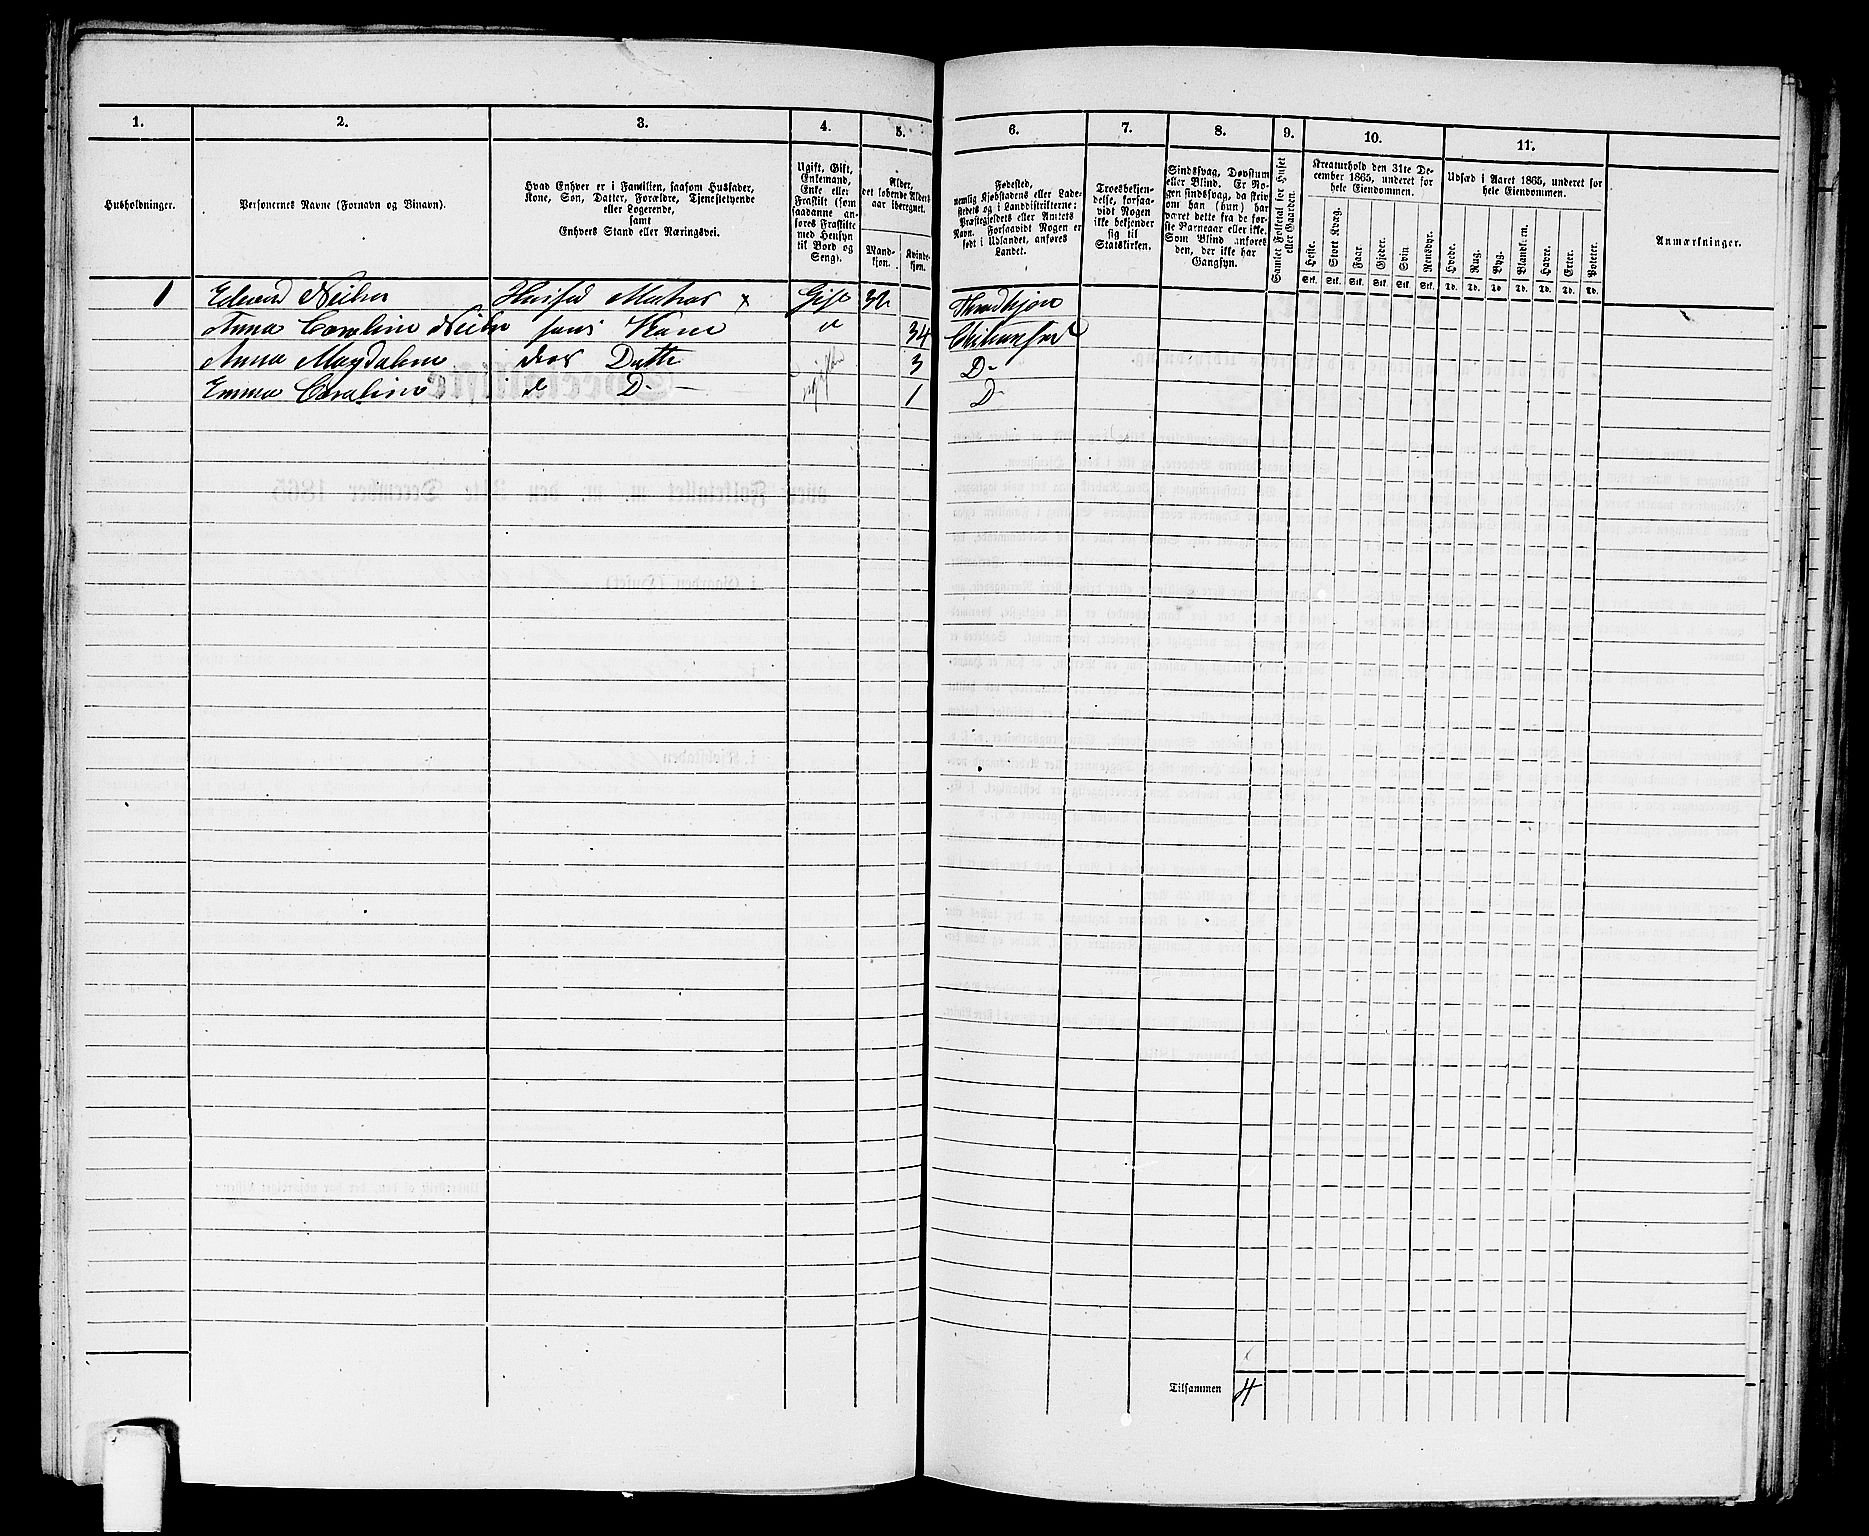 1. 2. 3. 4. 5. 6. 7. 8. 9. 10. 11.
Husholdninger.
Personernes Navne (Fornavn og Binavn).
Hvad Enhver er i Familien, saasom Husfader,
Kone, Søn, Datter, Forældre, Tjenestetyende
eller Logerende,
samt
Enhvers Stand eller Næringsvei.
Ugift, Gift,
Enkemand,
Enke eller
Fraskilt (som
saadanne an-
føres Fraskilte
med Hensyn
til Bord og
Seng).
Alder,
det løbende Alders-
aar iberegnet.
Mand-
kjøn.
Kvinde-
kjøn.
Fødested,
nemlig Kjøbstadens eller Lade-
stedets og i Landdistrikterne:
Præstegjeldets eller Amtets
Navn. Forsaavidt Nogen er
født i Udlandet, anføres
Landet.
Troesbekjen-
delse, forsaa-
vidt Nogen
ikke bekjender
sig til
Statskirken.
Sindssvag, Døvstum
eller Blind. Er No-
gen sindssvag, da skriv
om han (hun) har
været dette fra de før-
ste Barneaar eller ikke.
Som Blind anføres
den, der ikke har
Gangsyn.
Samlet Folketal for Huset
eller Gaarden.
Kreaturhold den 31te De-
cember 1865, underet for
hele Eiendommen.
Heste. Stort Kvæg. Faar. Gjeder. Svin. Rensdyr.
Stk. Stk. Stk. Stk. Stk. Stk.
Udsæd i Aaret 1865, underet for
hele Eiendommen.
Hvede. Rug. Byg. Blandk.rn. Havre. Erter. Poteter.
Td. Td. Td. Td. Td. Td. Td.
Anmærkninger.
1 Edvard Gift Throndhjem
Anna Caroline hans Kone " 34
Anna Magdalene deres Datter ugift 3 D-
Emma Caroline d D- 1 D-
Tilsammen 4